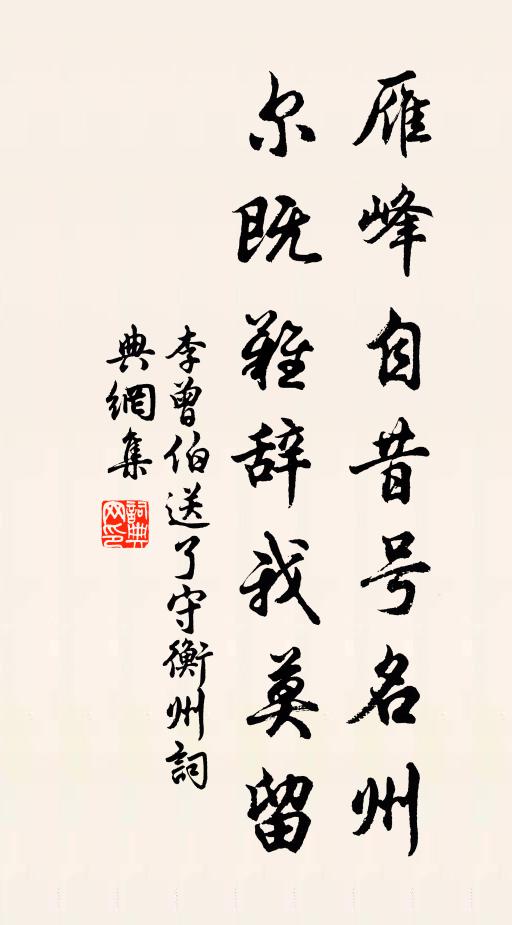 雁峰自昔号名州
尔既难辞我莫留
李曾伯送了守衡州詞
典網集
詞典网印